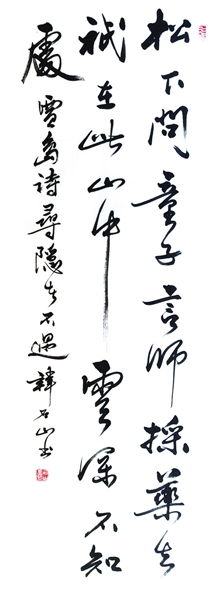 松下問童子言師採藥去
祇在此山中雲深不知
處 賈島詩尋隱者不遇 韓石山书